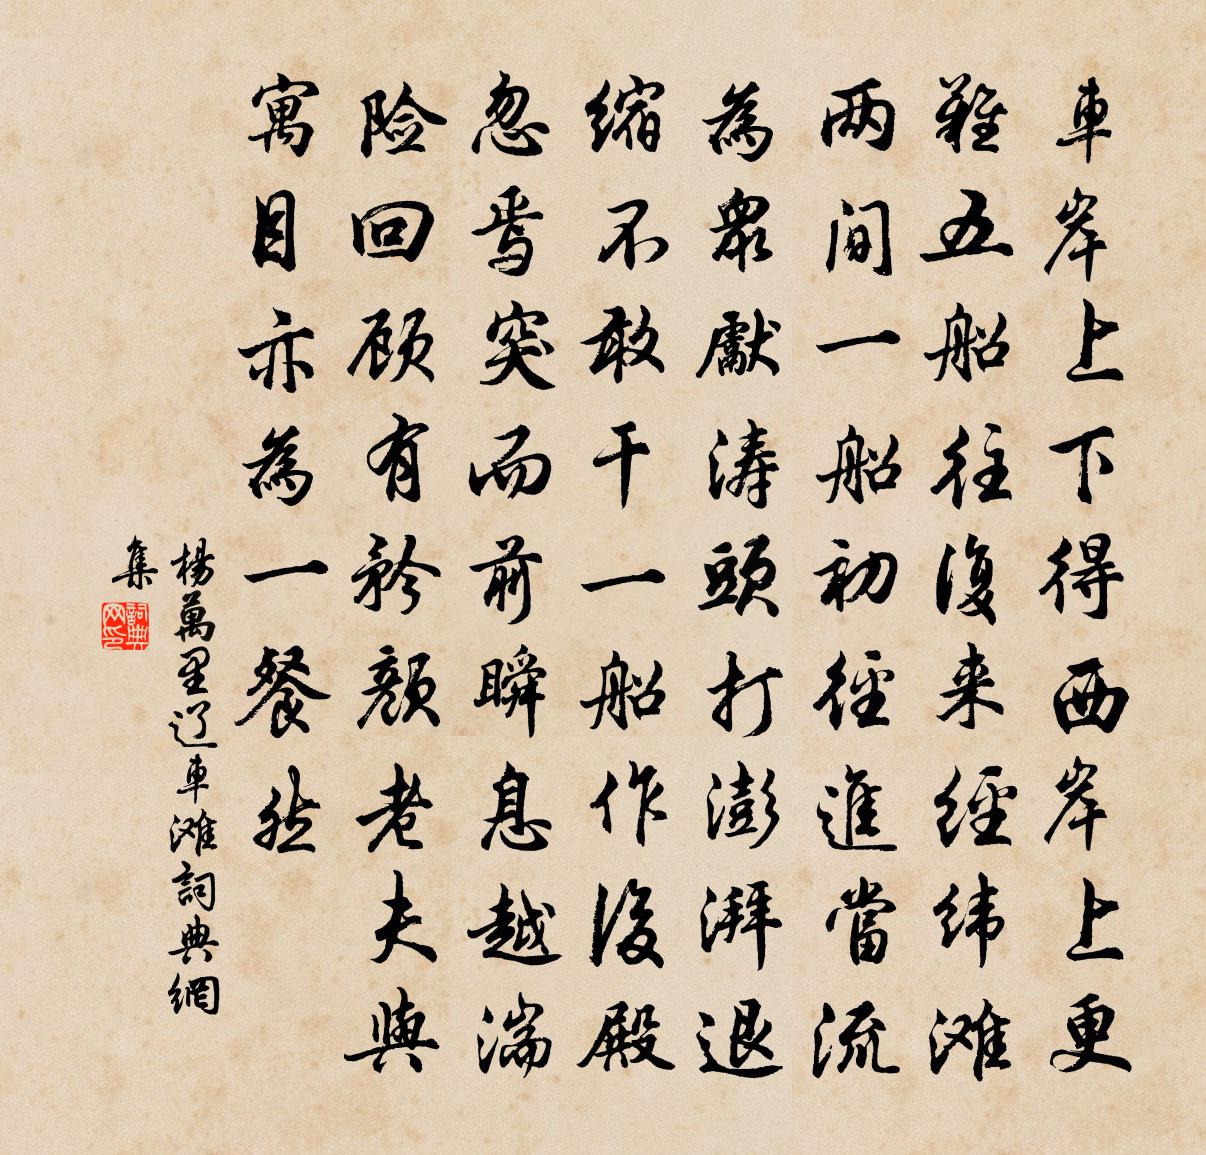 車岸上下得西岸上更
難五船往復来經緯滩
两间一船初徑進當流
為衆獻涛頭打澎湃退
縮不敢干一船作後殿
忽焉突而前瞬息越湍
险回顾有矜颜老夫與
寓目亦為一餐然
楊萬里过車滩詞典網
集
詞典网印